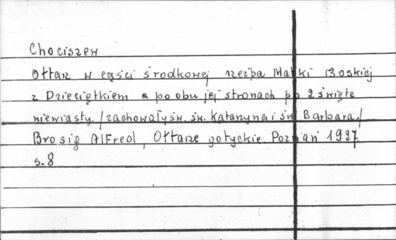 Chociszew
Ołtarz w częśći środkowej rzeźba Matki Boskiej
z Dzieciątkiem a po obu jej stronach po 2 święte
niewiasty. /zachowały św. św. Katarzyna i św. Barbara./
Brosig Alfred, Ołtarze gotyckie. Poznań 1927
s. 8